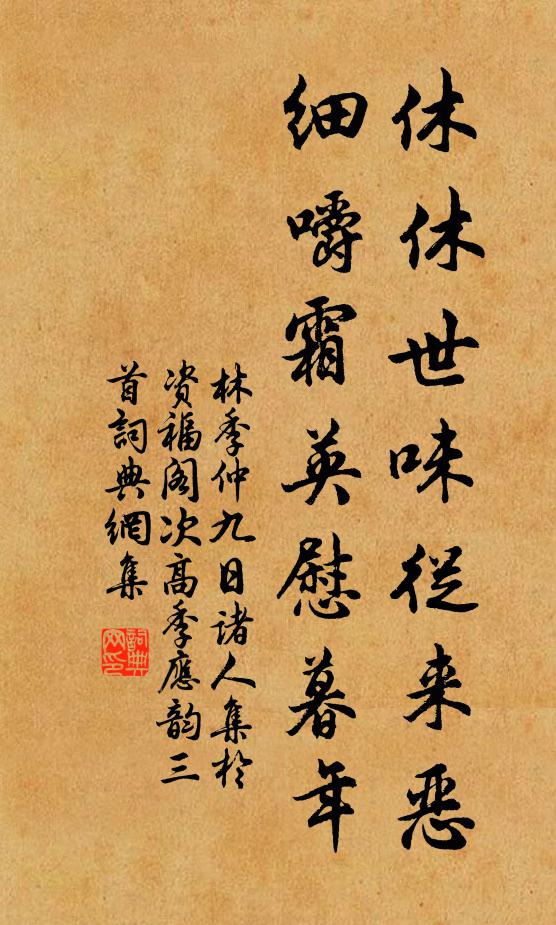 休休世味從来恶
细嚼霜英慰暮年
林季仲九日诸人集於
资福阁次高季應韵三
首詞典網集
詞典网印